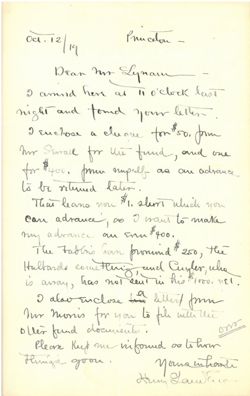 Oct. 12/19 Princeton —
Dear Mr Lynam —
I arrived here at 11 o'clock last
night and found your letter.
I enclose a cheque for $50. from
Mr for the fund, and one
for $400. from myself as an advance
to be returned later.
That leaves you $1. short which you
can advance, as I want to make
my advance an even $400.
The Fabbris have promised $250, the
Hubbards something, and Cuyler, who
is away, has not sent in his $100. yet.
I also enclose a letter from
Mr Morris for you to file with the
other fund documents.
over
Please keep me informed as to how
things go on.
Yours in haste